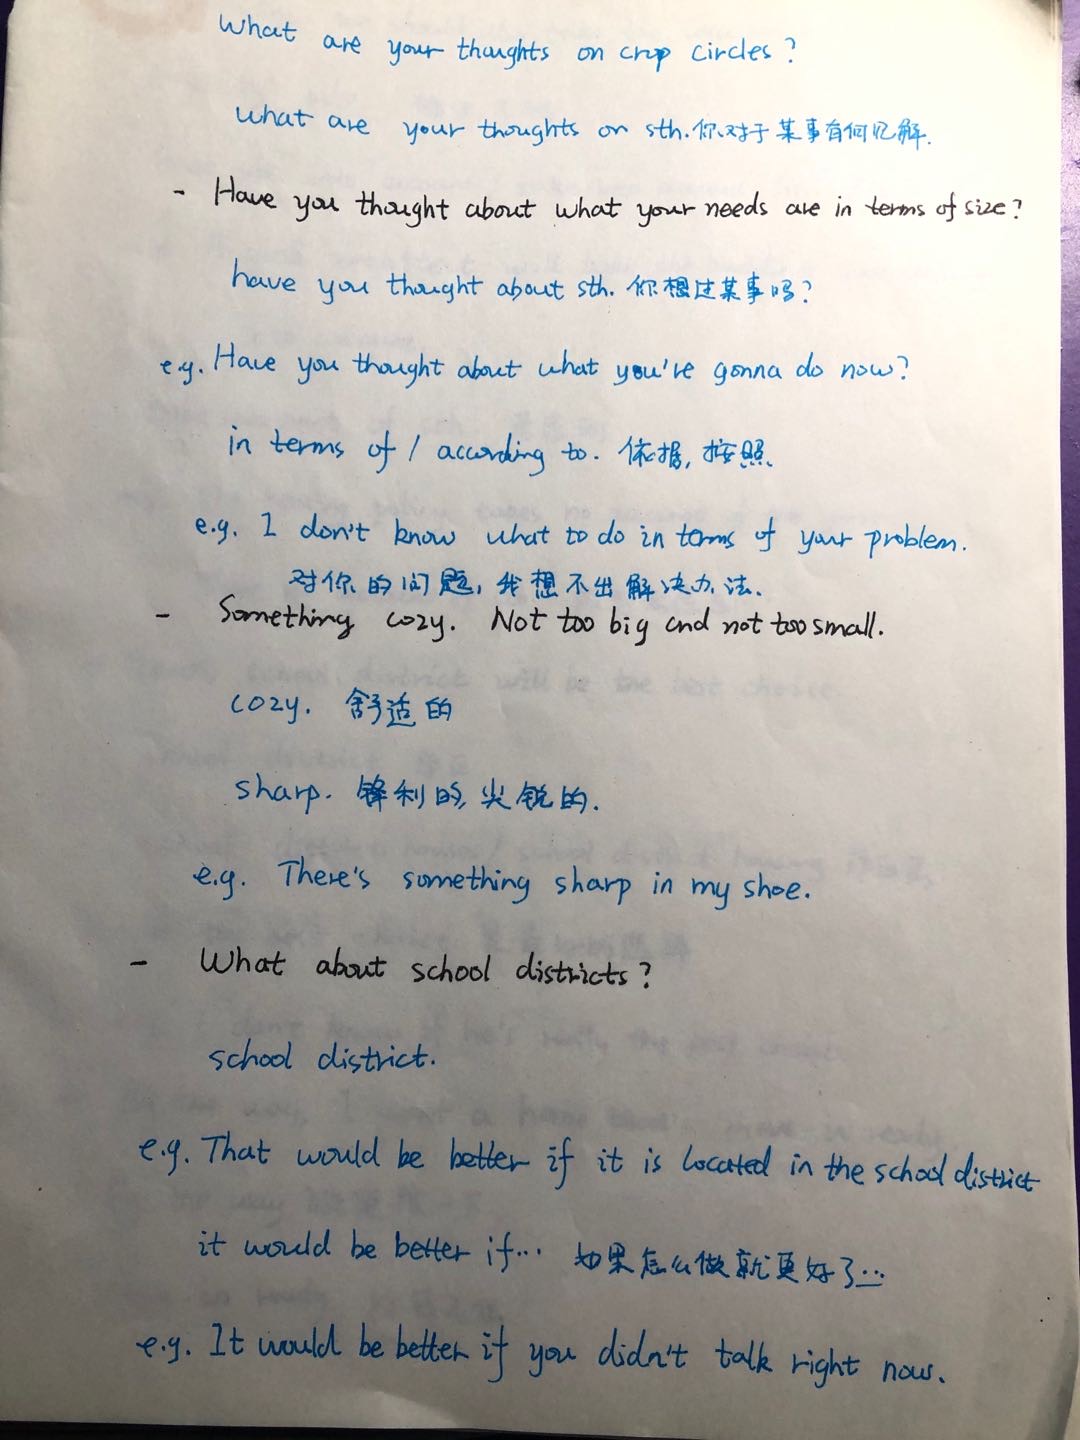 What are your thoughts on crop circles?
what are your thoughts on sth. 你对于某事有何见解.
- Have you thought about what your needs are in terms of size?
have you thought about sth. 你想过某事吗?
e.g. Have you thought about what you're gonna do now?
in terms of / according to. 依据, 按照
e.g. I don't know what to do in terms of your problem.
对你的问题, 我想不出解决办法.
- Something cozy. Not too big and not too small.
cozy. 舒适的
sharp. 锋利的, 尖锐的.
e.g. There's something sharp in my shoe.
- What about school districts?
school district.
e.g. That would be better if it is located in the school district
it would be better if... 如果怎么做就更好了...
e.g. It would be better if you didn't talk right now.